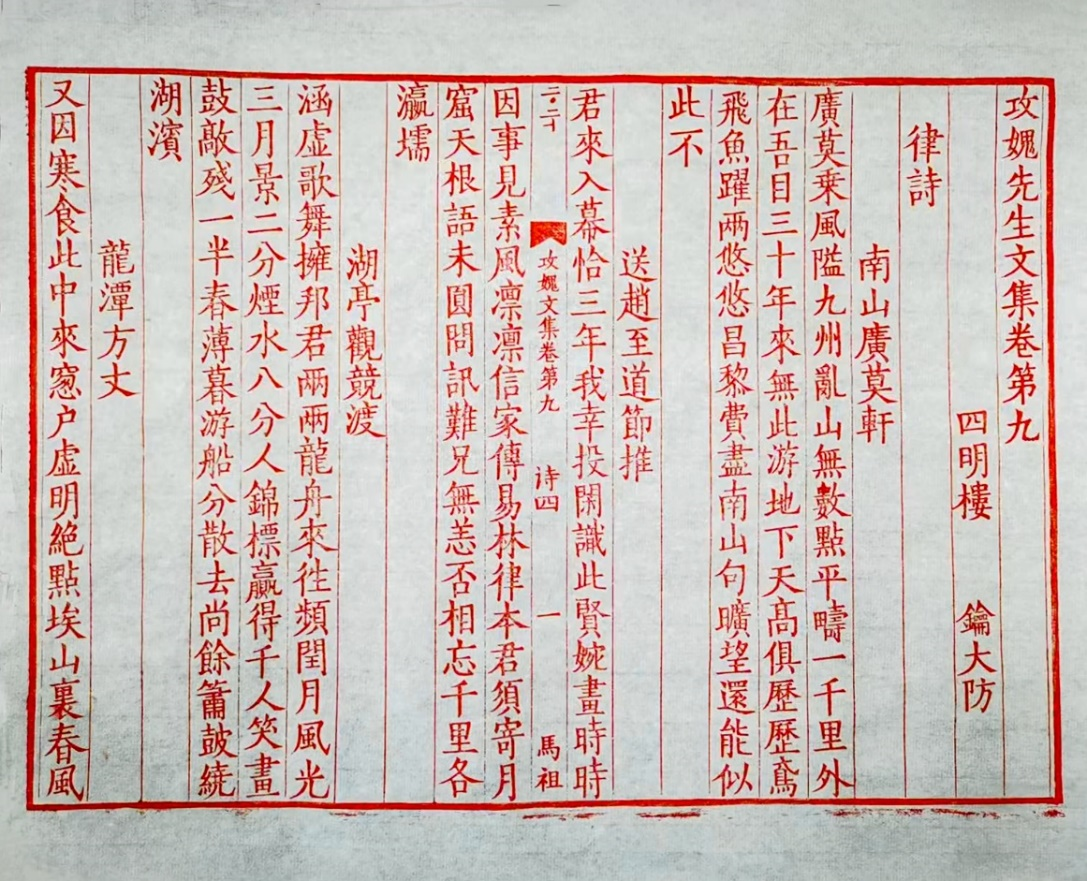 攻媿先生文集卷第九
四明樓 鑰大防
律詩
南山廣莫軒
廣莫乗風隘九州亂山無數點平疇一千里外
在吾目三十年來無此游地下天髙俱歷歷鳶
飛魚躍兩悠悠昌黎費盡南山句曠望還能似
此不
送趙至道節推
君來入幕恰三年我幸投閑識此賢婉畫時時
二·二十 攻媿文集卷第九 诗四 一 馬祖
因事見素風凛凛信家傳易林律本君須寄月
窟天根語未圓問訊難兄無恙否相忘千里各
瀛壖
湖亭觀競渡
涵虚歌舞擁邦君兩兩龍舟來徃頻閏月風光
三月景二分煙水八分人錦標贏得千人笑畫
鼓敲残一半春薄暮游船分散去尚餘簫鼓繞
湖濱
龍潭方丈
又因寒食此中來窻户虚明絶點埃山裏春風